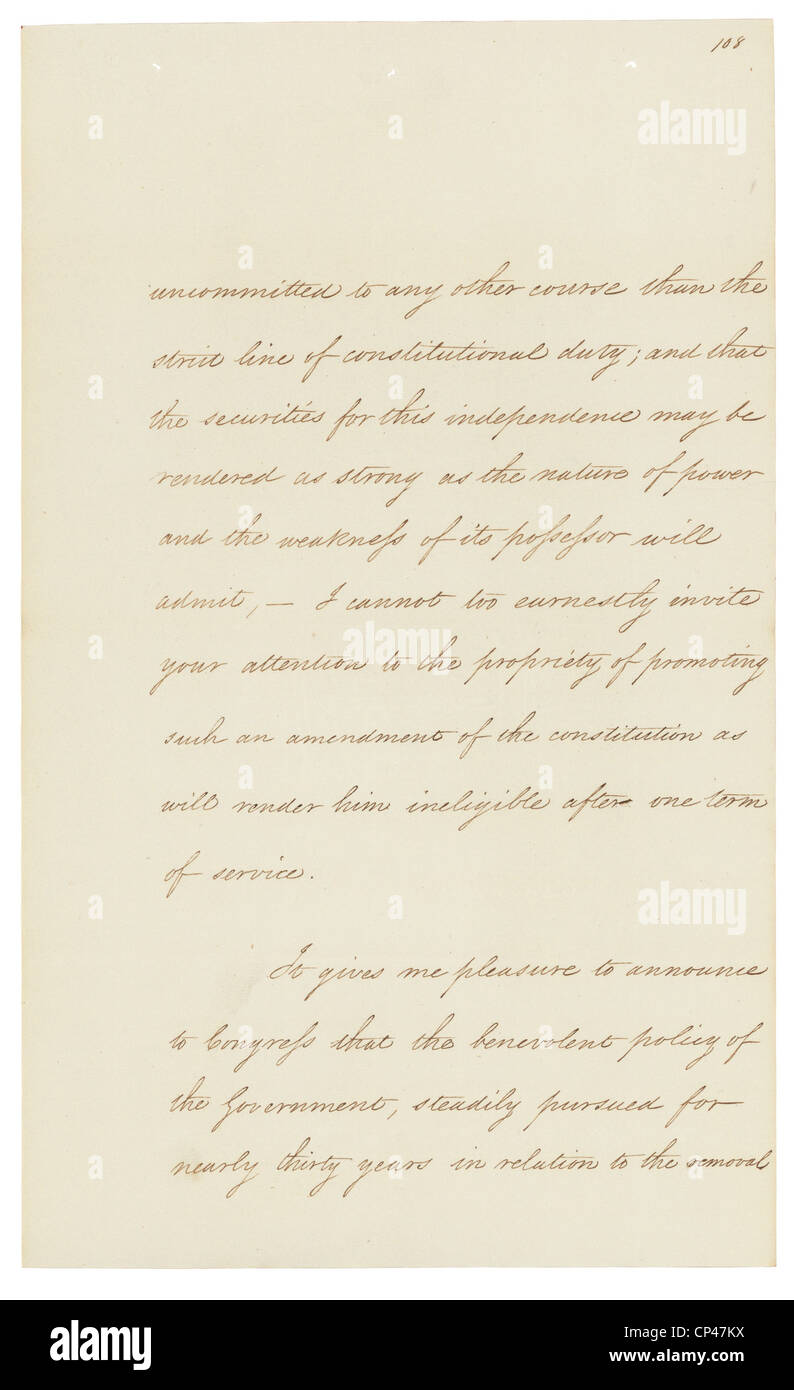 108
uncommitted to any other course than the
strict line of constitutional duty; and that
the securities for this independence may be
rendered as strong as the nature of power
and the weakneſs of its poſseſsor will
admit, — I cannot too earnestly invite
your attention to the propriety of promoting
such an amendment of the constitution as
will render him ineligible after one term
of service.
It gives me pleasure to announce
to Congreſs that the benevolent policy of
the Government, steadily pursued for
nearly thirty years in relation to the removal
a alamy
a a
alamy
a
a alamy
a a
alamy
Image ID: CP47KX
www.alamy.com